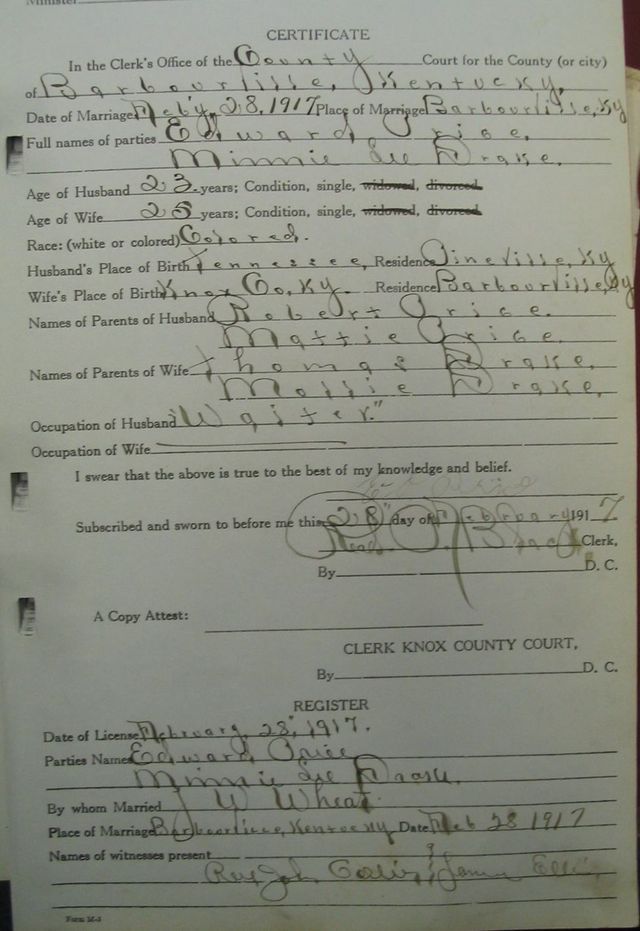 Minister
CERTIFICATE
In the Clerk's Office of the County Court for the County (or city)
of Barbourville, Kentucky.
Date of Marriage Feb'y, 28, 1917 Place of Marriage Barbourville, Ky
Full names of parties Edward Price,
Minnie Lee Drake.
Age of Husband 23 years; Condition, single, widowed, divorced.
Age of Wife 25 years; Condition, single, widowed, divorced.
Race: (white or colored) Colored.
Husband's Place of Birth Tennessee, Residence Pineville, Ky
Wife's Place of Birth Knox Co, Ky. Residence Barbourville, Ky
Names of Parents of Husband Robert Price.
Mattie Price.
Names of Parents of Wife Thomas Drake,
Mollie Drake,
Occupation of Husband "Waiter."
Occupation of Wife
I swear that the above is true to the best of my knowledge and belief.
Subscribed and sworn to before me this 28" day of February 1917
Clerk,
By D. C.
A Copy Attest:
CLERK KNOX COUNTY COURT,
By D. C.
REGISTER
Date of License February 28, 1917.
Parties Names Edward Price
Minnie Lee Drake
By whom Married J W Wheat
Place of Marriage Barbourville, Kentucky Date Feb 28 1917
Names of witnesses present
Rev John
Form M-3